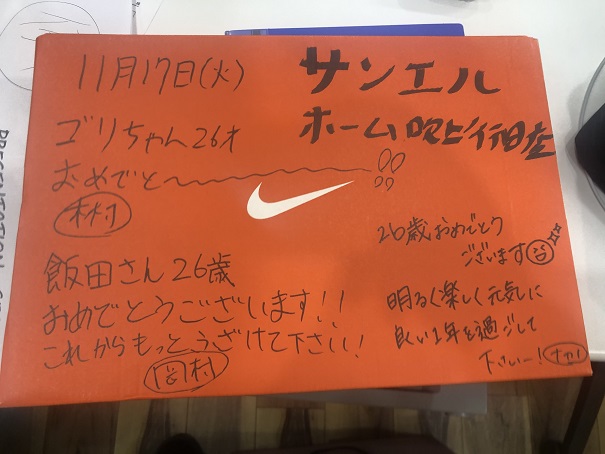 11月17日(火)
サンエル
ホーム
ゴリちゃん26才
おめでと〜
林村
飯田さん26歳
おめでとうございます!!
これからもっとふざけて下さい!
岡村
26歳おめでとう
ございます
明るく楽しく元気に
良い1年を過ごして
下さいー!
PRESENTATION